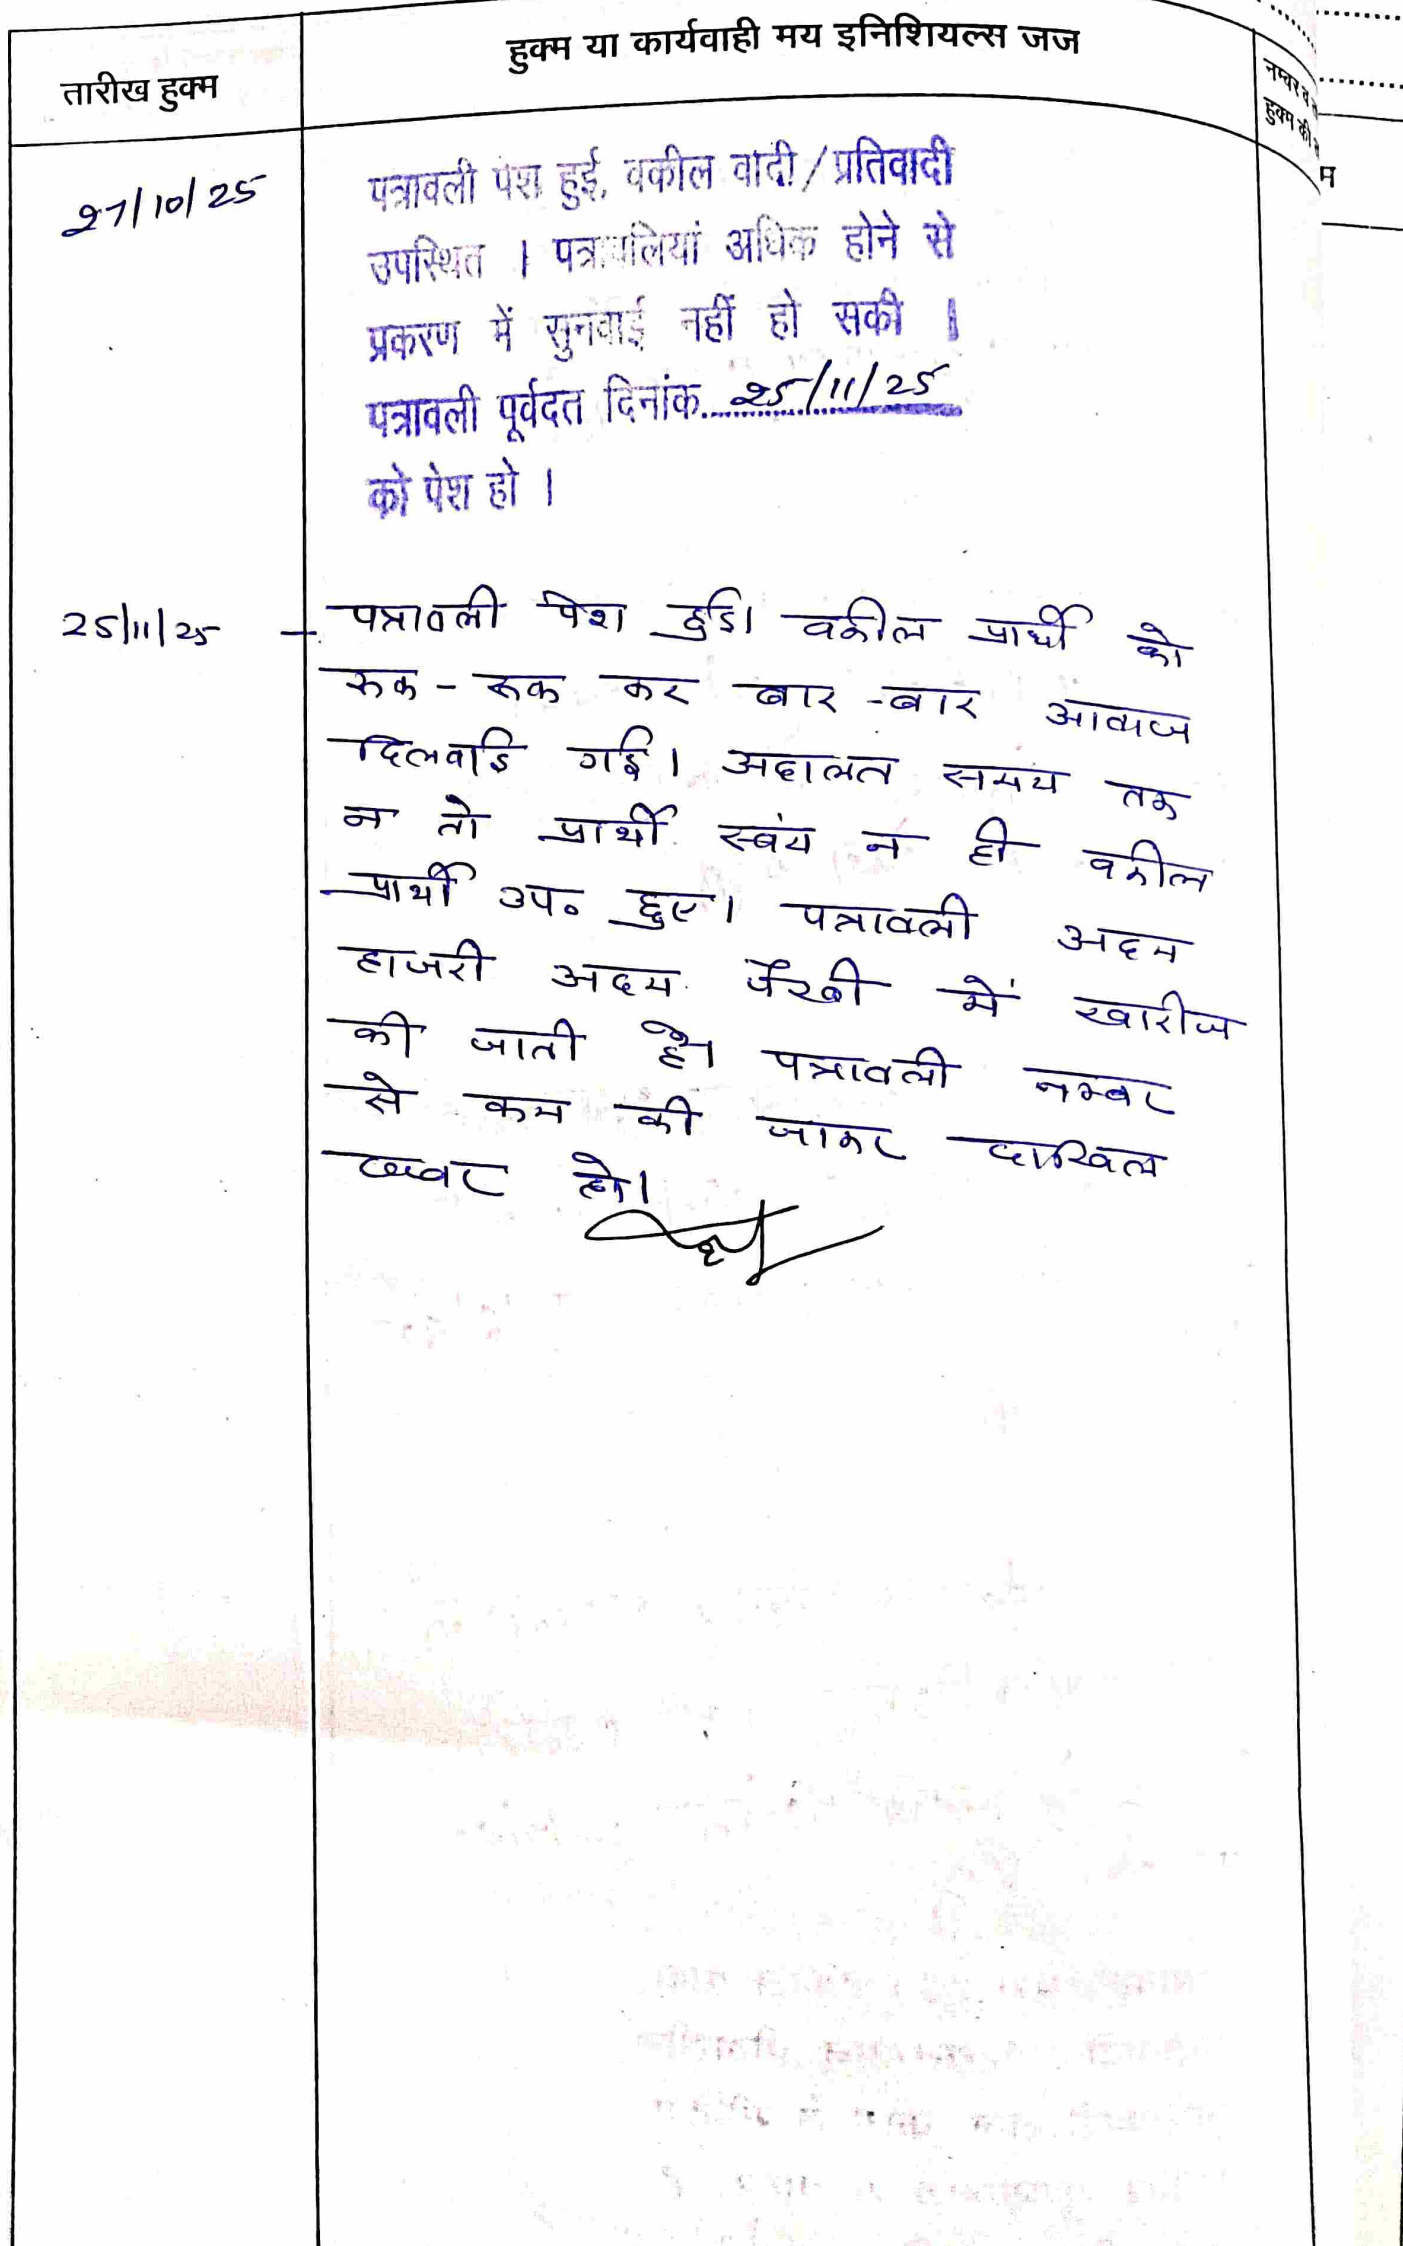 तारीख हुक्म
हुक्म या कार्यवाही मय इनिशियल्स जज
नम्बर व
हुक्म की
म
27/10/25
पत्रावली पेश हुई, वकील वादी/प्रतिवादी
उपस्थित । पत्रावलियां अधिक होने से
प्रकरण में सुनवाई नहीं हो सकी ।
पत्रावली पूर्वदत दिनांक 25/11/25
को पेश हो ।
25/11/25
पत्रावली पेश हुई। वकील प्रार्थी को
रूक - रूक कर बार - बार आवाज
दिलवाई गई। अदालत समय तक
न तो प्रार्थी स्वंय न ही वकील
प्रार्थी उप० हुए। पत्रावली अदम
हाजरी अदम पैरवी में खारीज
की जाती है। पत्रावली नम्बर
से कम की जाकर दाखिल
हो।